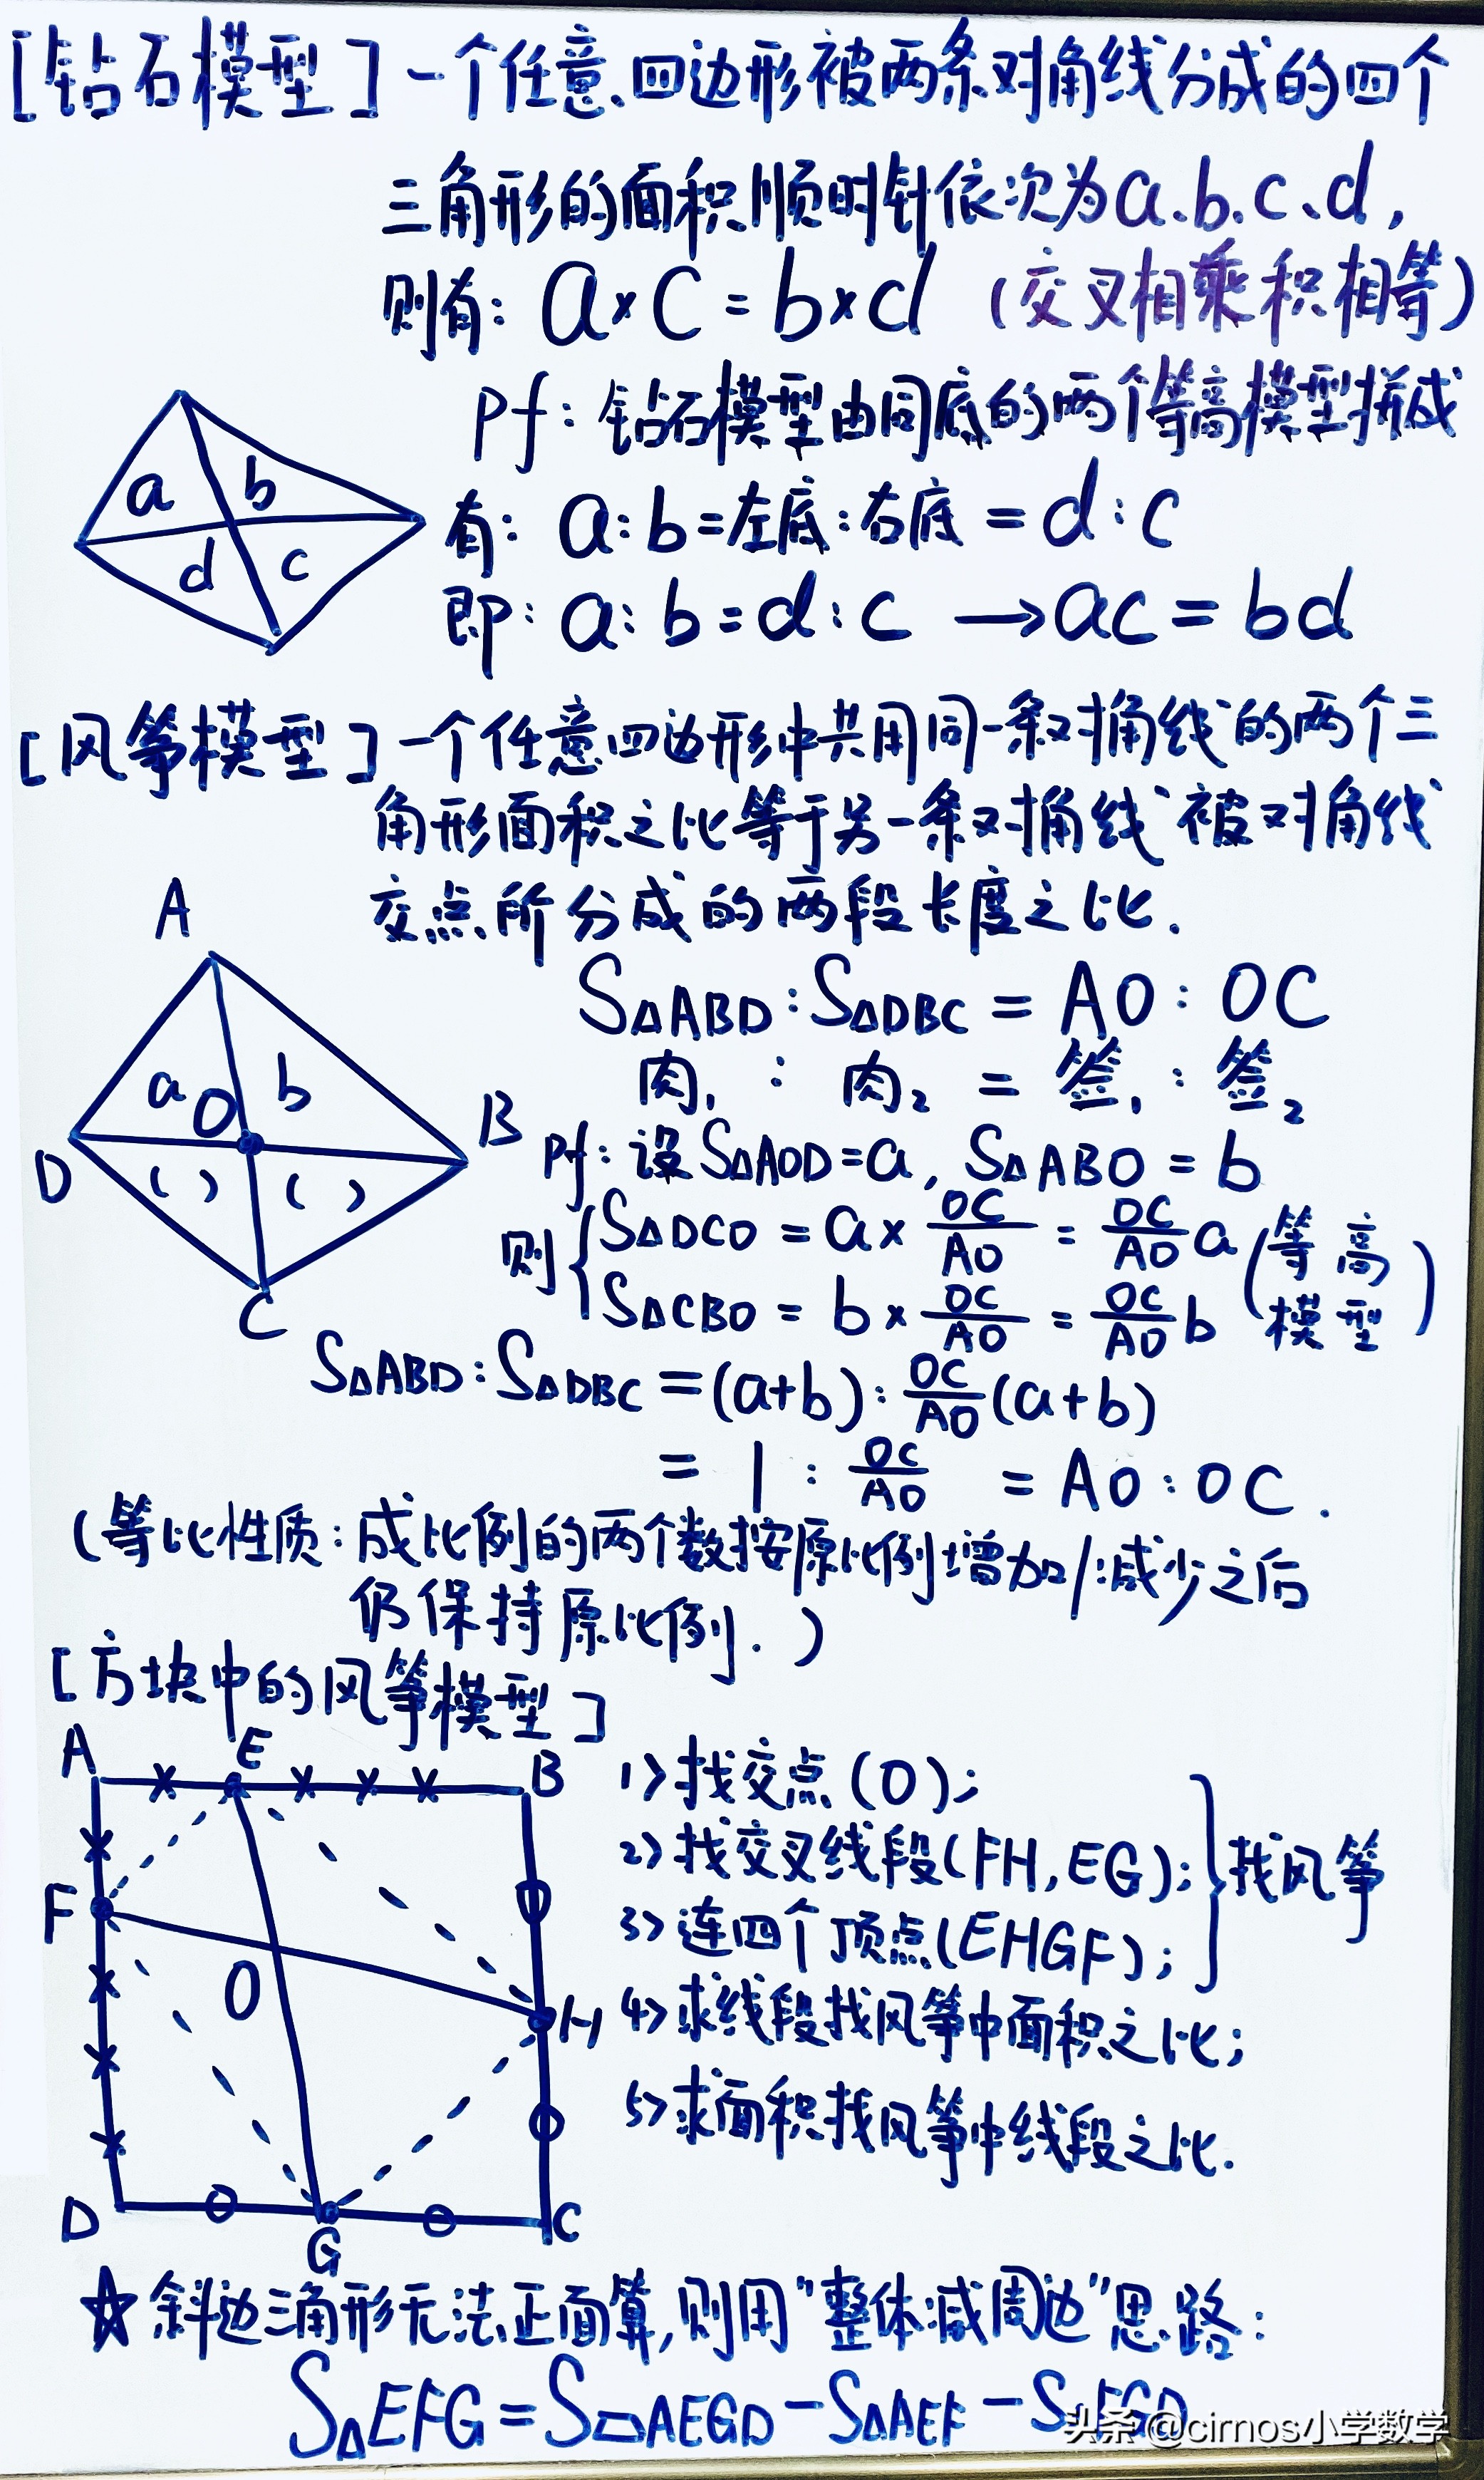 [钻石模型]一个任意四边形被两条对角线分成的四个
三角形的面积顺时针依次为a.b.c、d,
则有: a×c=b×d (交叉相乘积相等)
Pf: 钻石模型由同底的两个等高模型拼成
a b
d c
有: a:b=左底:右底=d:c
即: a:b=d:c →ac=bd
[风筝模型]一个任意四边形中共用同一条对角线的两个三
角形面积之比等于另一条对角线被对角线
交点所分成的两段长度之比.
A
S△ABD:S△DBC=AO:OC
肉₁:肉₂=签₁:签₂
a O b
D B
( ) ( )
C
Pf: 设S△AOD=a, S△ABO=b
则{S△DCO=a×OC/AO=OC/AO a
S△CBO=b×OC/AO=OC/AO b
(等高
模型)
S△ABD:S△DBC=(a+b):OC/AO(a+b)
=1:OC/AO=AO:OC.
(等比性质:成比例的两个数按原比例增加/减少之后
仍保持原比例.)
[方块中的风筝模型]
A E B
F
O
H
D G C
1>找交点(O);
2>找交叉线段(FH,EG);
3>连四个顶点(EHGF);
}找风筝
4>求线段找风筝中面积之比;
5>求面积找风筝中线段之比.
☆斜边三角形无法正面算,则用"整体减周边"思路:
S△EFG=S▱AEGD-S△AEF-S△FGD
头条 @cirnos小学数学